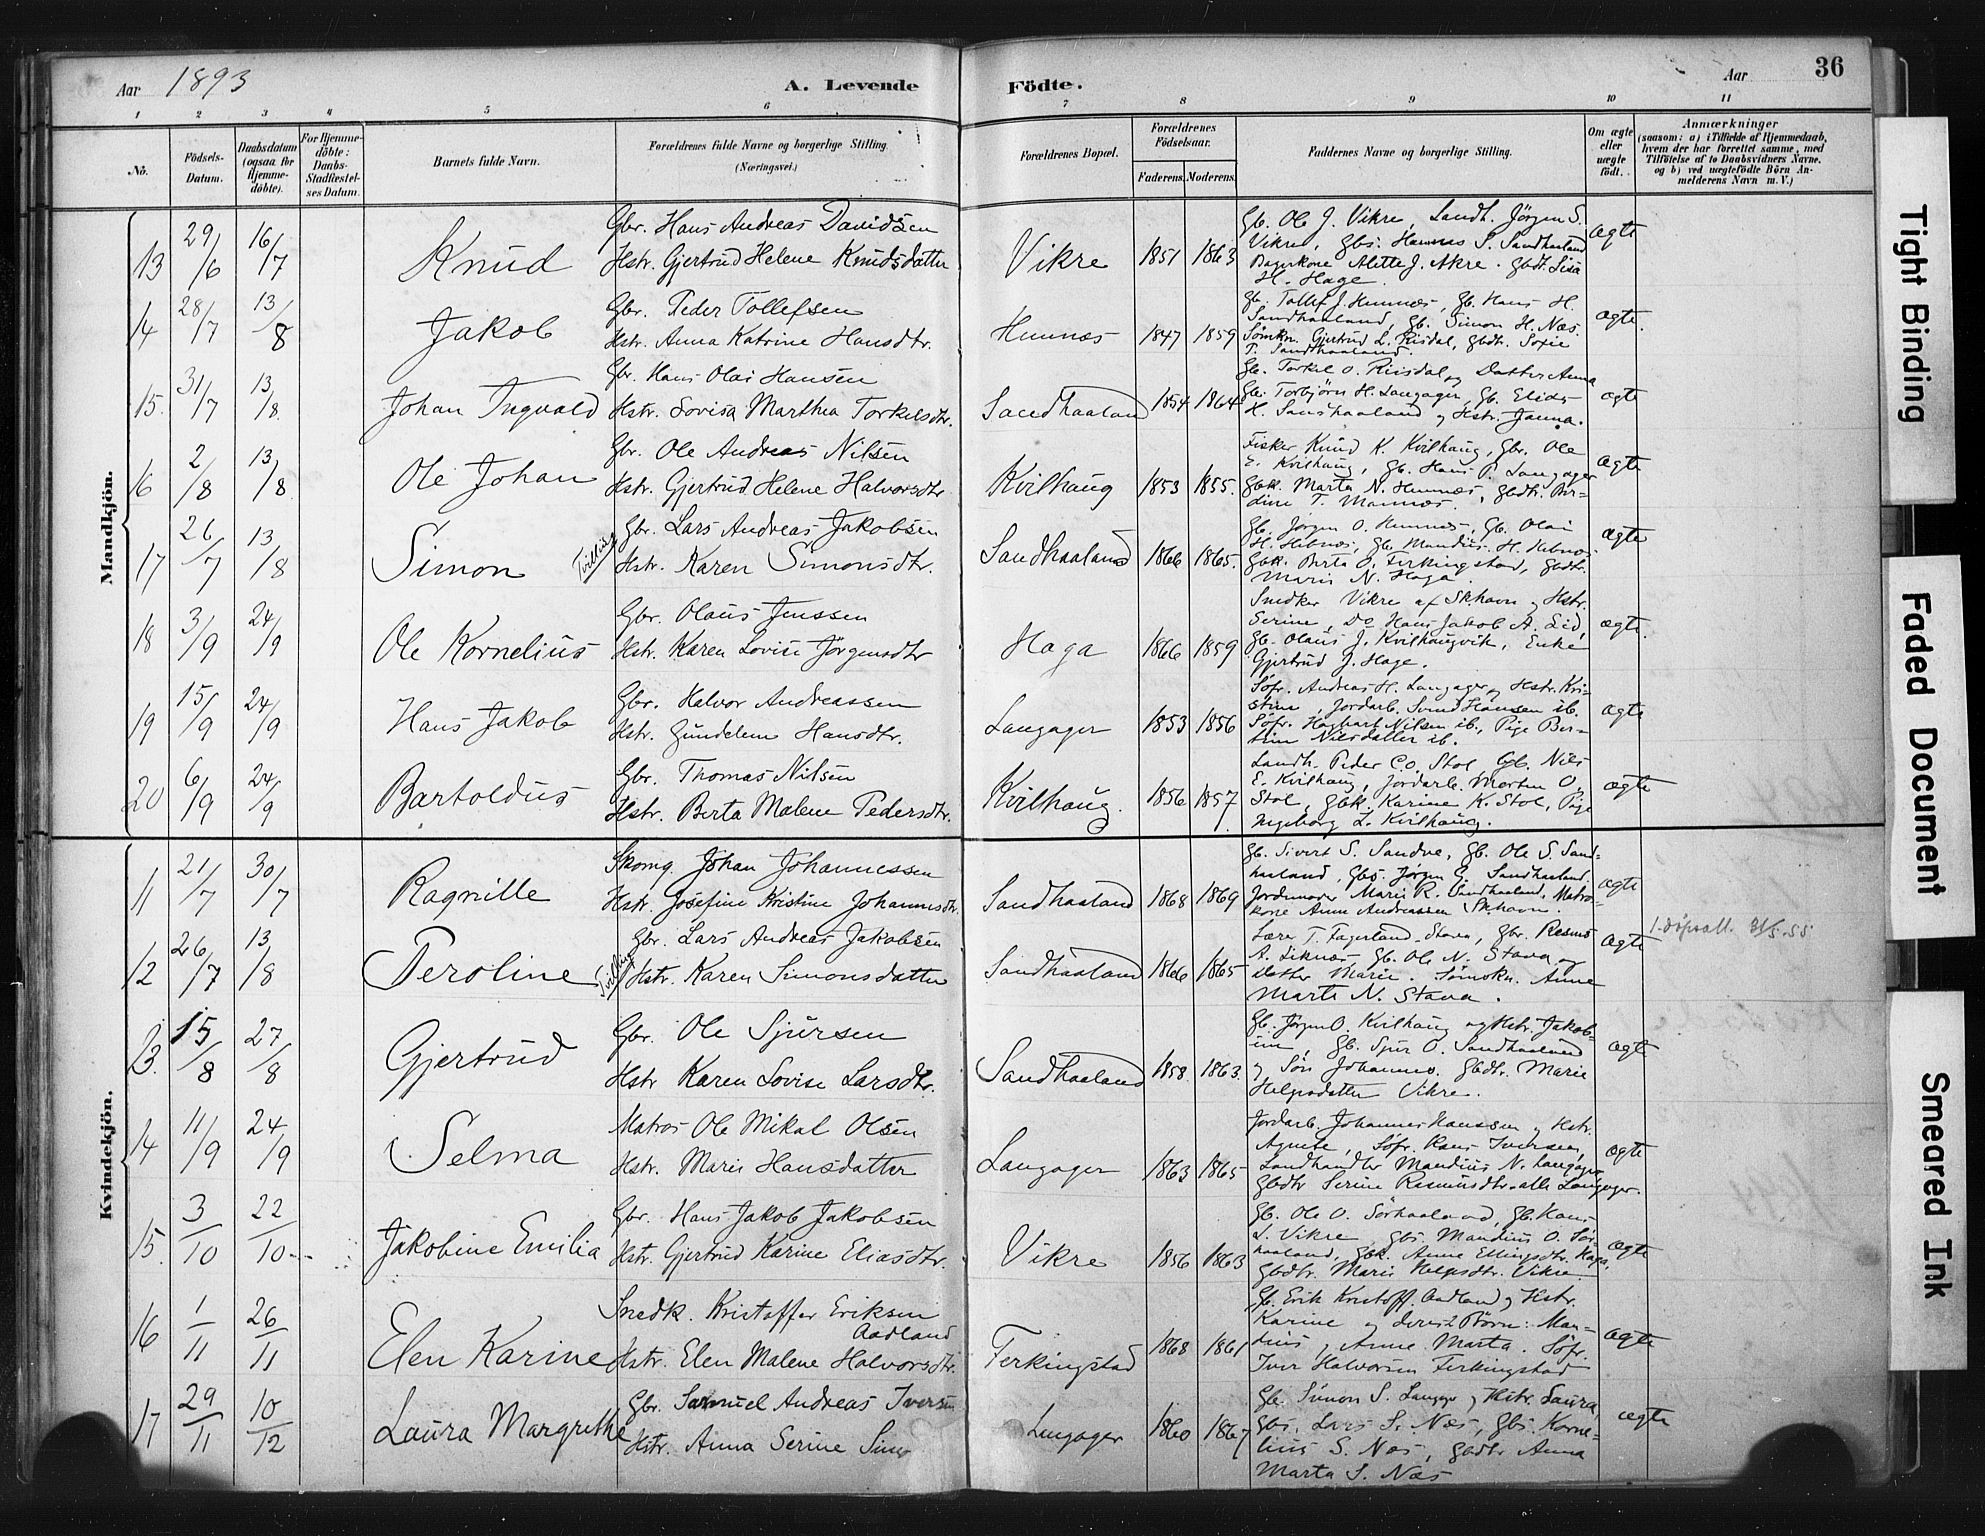 Aar 1893
A. Levende
Födte.
Aar
36
1 2 3 4 5 6 7 8 9 10 11
No.
Födsels-Datum.
Daabsdatum (ogsaa for Hjemme-döbte).
For Hjemme-döbte: Daabs-Stadfæstel-ses Datum.
Barnets fulde Navn.
Forældrenes fulde Navne og borgerlige Stilling.
(Næringsvei.)
Forældrenes Bopæl.
Forældrenes Födselsaar.
Faderens. Moderens.
Faddernes Navne og borgerlige Stilling.
Om ægte eller uægte födt.
Anmærkninger
(saasom: a) i Tilfælde af Hjemmedaab,
hvem der har forrettet samme, med
Tilföielse af to Daabsvidners Navne,
og b) ved uægtefödte Börn An-
melderens Navn m. V.)
Mandkjön.
13 29/6 16/7 Knud
Gbr. Hans Andreas Davidsen
Hstr. Gjertrud Helene Knudsdatter
Vikre 1851 1863
Gb. Ole J. Vikre, Landh. Jörgen S.
Vikre, Gbs. Hannas S. Sandhaaland
Bagerkone Alette J. Akre. Gbdt. Lisa
H. Hage.
ægte
14 28/7 13/8 Jakob
Gbr. Peder Tollefsen
Hstr. Anna Katrine Hansdtr.
Hemnæs 1847 1859
Gb. Tollef J. Hemnæs, Gb. Hans H.
Sandhaaland, Gb. Simon H. Næs.
Sömkn. Gjertrud L. Risdal, Gbdtr. Sofie
P. Sandhaaland.
ægte.
15. 31/7 13/8. Johan Ingvald
Gbr. Hans Olai Hansen
Hstr. Lovisa Martha Torkelsdtr.
Sandhaaland 1854 1864
Gb. Torkel O. Risdal og Datter Anna
Gb. Torbjörn H. Langager, Gb. Elias
H. Sandhaaland og Hstr. Janna.
ægte
16 2/8 13/8 Ole Johan
Gbr. Ole Andreas Nilsen
Hstr. Gjertrud Helene Halvorsdtr.
Kvilhaug 1853 1855.
Fisker Knud K. Kvilhaug, Gbr. Ole
E. Kvilhaug, Gb. Hans P. Langager
Gbk. Marta N. Hemnæs, Gbdtr. Ber-
dine T. Mannes.
ægte
17 26/7 13/8 Simon Tvilling
Gbr. Lars Andreas Jakobsen
Hstr. Karen Simonsdtr.
Sandhaaland 1866 1865.
Gb. Jörgen O. Hemnæs, Gb. Olai
H. Hebnes, Gb. Mandius H. Hebnes
Gbk. Berta O. Ferkingstad, Gbdtr.
Maria N. Haga.
ægte
18 3/9 24/9 Ole Kornelius
Gbr. Olaus Jenssen
Hstr. Karen Lovise Jörgensdtr
Haga 1866 1859
Snedker Vikre af Skhavn og Hstr.
Serine, Do Hans Jakob A. Eid,
Gb. Olaus J. Kvilhaugvik, Enke
Gjertrud J. Hage.
ægte.
19 15/9 24/9 Hans Jakob
Gbr. Halvor Andreassen
Hstr. Gundelene Hansdtr.
Langager 1853 1856
Söfr. Andreas H. Langager og Hstr. Kri-
stine, Jordarb. Svend Hansen ib.
Söfr. Hagbart Nilsen ib., Pige Ber-
tine Nilsdatter ib.
ægte
20 6/9 24/9 Bartoldus
Gbr. Thomas Nilsen
Hstr. Berta Malene Pedersdtr.
Kvilhaug. 1856 1857.
Landh. Peder C.O. Stol, Gb. Niels
E. Kvilhaug, Jordarb. Morten O.
Stol, Gbk. Karine K. Stol, Pige
Ingeborg L. Kvilhaug.
ægte
Kvindekjön.
11 21/7 30/7 Ragnille
Skomg. Johan Johannessen
Hstr. Josefine Kristine Johannesdtr.
Sandhaaland 1868 1869
Gb. Sivert S. Sandve, Gb. Ole S. Sand-
haaland, Gbs. Jörgen G. Sandhaaland
Jordemoder Marie R. Sandhaaland, Matros-
kone Anne Andreassen Skhavn.
ægte
12 26/7 13/8 Peroline Tvilling
Gbr. Lars Andreas Jakobsen
Hstr. Karen Simonsdatter
Sandhaaland 1866 1865
Lærer T. Fagerland, Stava, Gbr. Rasmus
A. Liknæs, Gb. Ole N. Stava og
Datter Marie. Sömskn. Anne
Marta N. Stava.
ægte
1. döpsatt. 31/5.55
13. 15/8 27/8 Gjertrud
Gbr. Ole Sjursen
Hstr Karen Lovise Larsdtr.
Sandhaaland 1858. 1863.
Gb. Jörgen O. Kvilhaug og Hstr. Jakob-
ine, Gb. Sjur O. Sandhaaland
og Sön Johannes. Gbdtr. Marie
Helgesdatter Vikre.
ægte
14 11/9 24/9 Selma
Matros Ole Mikal Olsen
Hstr. Marie Hansdatter
Langager 1863 1865
Jordarb. Johannes Hanssen og Hstr.
Agnete, Söfr. Hans Iversen,
Landhandler Mandius N. Langager
Gbdtr Serine Rasmusdtr. alle Langager.
ægte
15. 3/10 22/10 Jakobine Emilia
Gbr. Hans Jakob Jakobsen
Hstr. Gjertrud Karine Eliasdtr.
Vikre 1856 1863
Gb. Ole O. Sörhaaland, Gb. Hans
S. Vikre, Gbs. Mandius O. Sör-
haaland, Gbk. Anne Ellingsdtr. Haga,
Gbdtr. Marie Helgesdtr. Vikre
ægte
16 1/11 26/11 Elen Karine
Snedk. Kristoffer Eriksen
Aadland
Hstr. Elen Malene Halvorsdtr.
Ferkingstad 1868 1861
Gb. Erik Kristoff. Aadland og Hstr.
Karine og deres 2 Börn: Man-
dius og Anne Marta. Söfr.
Iver Halvorsen Ferkingstad
ægte
17 29/11 10/12 Laura Margrethe
Gbr. Samuel Andreas Iversen
Hstr. Anna Serine
Langager 1860 1867
Gb. Simon S. Langager og Hstr. Laura,
Gbs. Lars S. Næs, Gbs. Korne-
lius S. Næs, Gbdtr. Anna
Marta S. Næs
ægte
Tight Binding
Faded Document
Smeared Ink